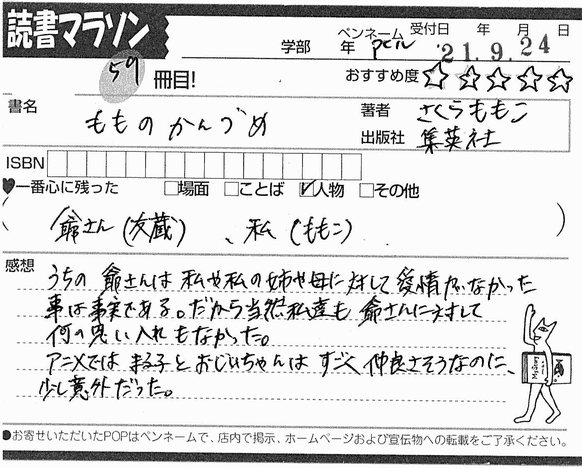 読書マラソン
学部 年 ペンネーム 受付日 年 月 日
'21.9.24
59冊目!
おすすめ度 ☆☆☆☆☆
書名 もものかんづめ
著者 さくらももこ
出版社 集英社
ISBN
♥一番心に残った □場面 □ことば ☑人物 □その他
( 爺さん(友蔵)、私(ももこ) )
感想
うちの爺さんは私や私の姉や母に対して愛情がなかった
事は事実である。だから当然私達も爺さんに対して
何の思い入れもなかった。
アニメではまる子とおじいちゃんはすごく仲良さそうなのに、
少し意外だった。
●お寄せいただいたPOPはペンネームで、店内で掲示、ホームページおよび宣伝物への転載をご了承ください。